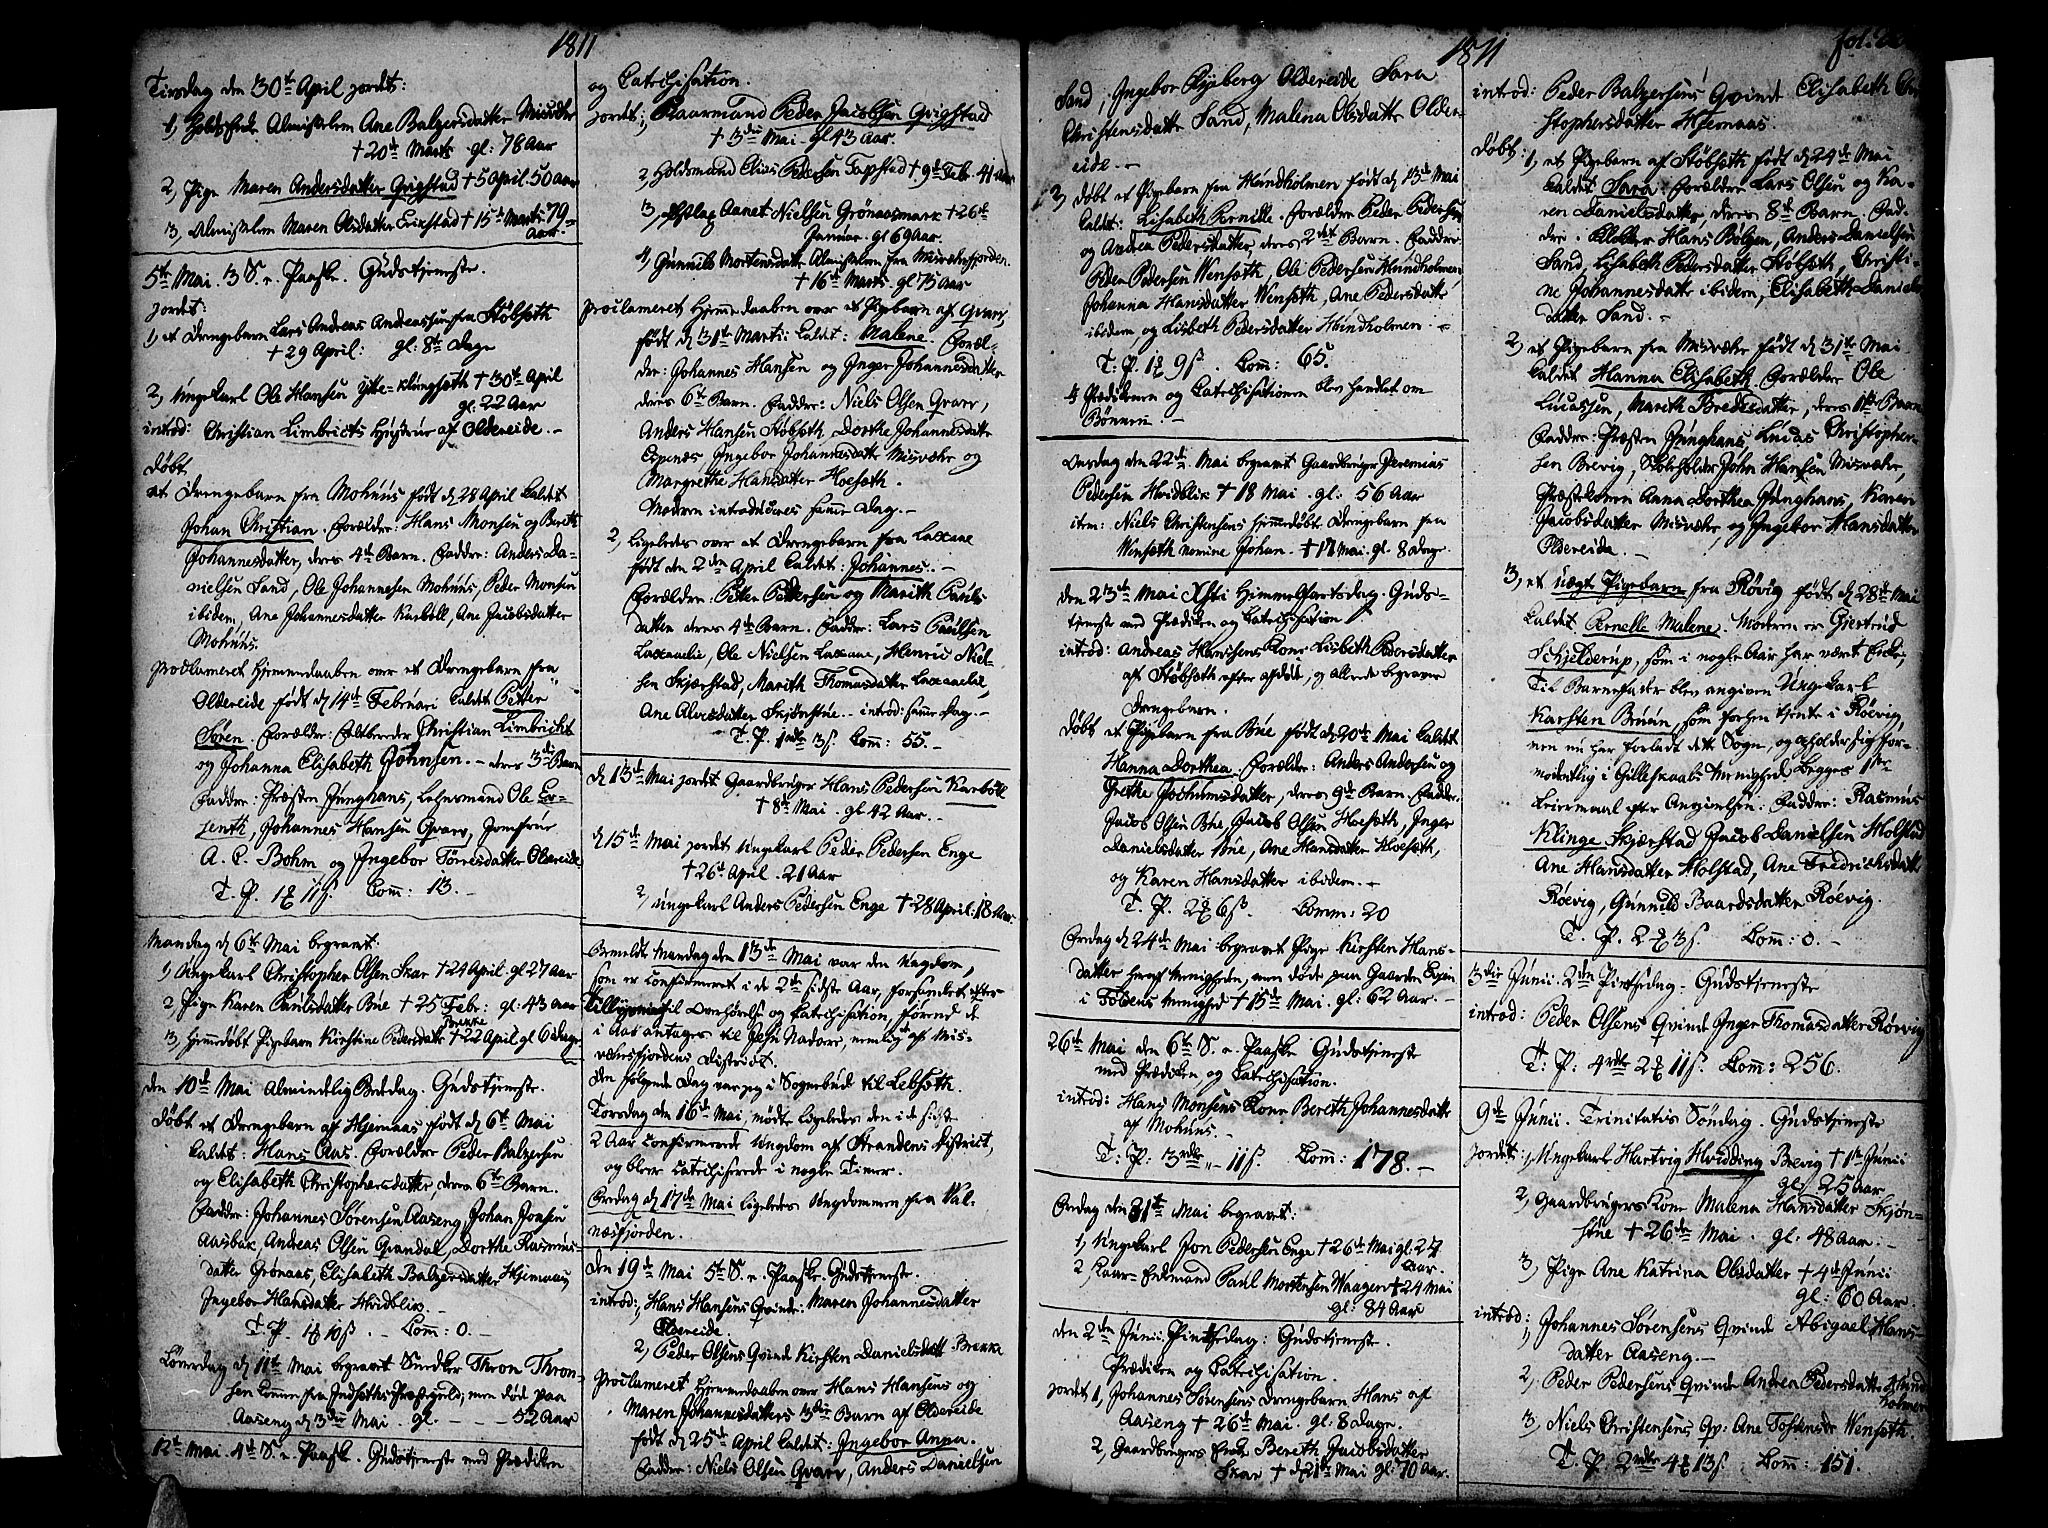 1811
Tirsdag den 30te April jordet:
1, Almisselem Ane Balzersdatter Misvær
† 20de Marts gl: 78 Aar
2, Pige Maren Andersdatter Grigstad † 5 April. 50 Aar
3, Almisselem Maren Olsdatter Erikstad † 15de Marts 79
Aar.
5te Mai. 3 S. e. Paaske. Gudstjeneste.
Jordet:
1, et Drengebarn Lars Andreas Andreassen fra Stobseth
† 29 April: gl: 8te Dage
2, Ungekarl Ole Hansen Ytte-Klungseth † 30te April
gl. 22 Aar
introd: Christian Limbrichts Hustrue af Oldereide. -
Døbt
et Drengebarn fra Mohuus født d. 28 April kaldet
Johan Christian. Forældre: Hans Monsen og Bereth
Johannesdatter, deres 4de Barn. Faddre: Anders Da-
nielsen Sand, Ole Johannesen Mohuus, Peder Monsen
ibidem, Ane Johannesdatter Karbøll, Ane Jacobsdatter
Mohuus.
proclameret Hjemmedaaben over et Drengebarn fra
Oldereide født d. 14de Februari kaldet Petter
Søren. Forældre: Christian Limbricht
og Johanna Elisabeth Johnsen. - deres 3die Barn
Faddre: Præsten Junghans, Lehnsmand Ole
Johannes Hansen Qvarv, Jomfrue
A. C. Bohm og Ingebor Torresdatter Oldereide
Comm: 13. -
Mandag d. 6te Mai begravet:
1, Ungekarl Christopher Olsen Skar † 24 April gl 27 Aar
2, Pige Karen Paulsdatter Bue † 25 Febr: gl: 43 Aar
3, Hjemmedøbt Pigebarn Kirstine Pedersdatter Brekke † 22 April gl 6 Dage
den 10de Mai Almindelig Bededag. Gudstjeneste.
Døbt et Drengebarn af Hjemaas født d. 6te Mai
kaldet: Hans Aas. Forældre Peder Balzersen
og Elisabeth Christophersdatter, deres 6te Barn.
Faddre: Johannes Sørensen Aaseng Johan Jonsen
Aasbak, Andreas Olsen Grandal, Dorthe Rasmus-
datter Grønaas, Elisabeth Balzersdatter Hjemaas,
Ingebor Hansdatter Hvidblik. -
Comm: 0. -
Løverdag d. 11te Mai begravet Snedker Thron Thron-
sen kommen fra Indseths Præstegield, men død paa
Aaseng d. 3die Mai. gl. - - - 52 Aar
12te Mai. 4de S. e. Paaske. Gudstjeneste med Prædiken
og Catechisation.
jordet: 1, Kaarmand Peder Jacobsen Grigstad
† 3die Mai. gl 43 Aar.
2, Holdsmand Elias Pedersen Tapstad † 9de Febr. 41 Aar
3, Aanet Nielsen Grønaasmark † 26de
Januar. gl 69 Aar.
4, Gunnild Mortensdatter Almisselem fra Misværfjorden
† 16de Marts gl 75 Aar
proclameret Hjemmedaaben over et Pigebarn af Qvarv,
født d. 31te Marti: kaldet: Malene. Foræl-
dre: Johannes Hansen og Inger Johannesdatter
deres 6te Barn. Faddre: Niels Olsen Qvarv,
Anders Hansen Stobseth Dorthe Johannesdatter
Espenæs Ingebor Johannesdatter Misvær og
Margrethe Hansdatter Hoeseth.
Modern introduceres samme Dag. -
2, Ligeledes over et Drengebarn fra
født den 2den April kaldet: Johannes. -
Forældre: Petter Pettersen og Marith Pauls
datter deres 4de Barn. Faddre: Lars Paulsen
Ole Nielsen Henric Niel-
sen Skjærstad, Marith Thomasdatter
Ane Alvesdatter Skjønstue. - introd: samme Dag. -
T. P. Comm: 55. -
d. 13de Mai jordet Gaardbruger Hans Pedersen Karbøll
† 8de Mai. gl 42 Aar. -
d. 15de Mai jordet Ungekarl Peder Pedersen Enge
† 26de April. 21 Aar
2, Ungekarl Anders Pedersen Enge † 28 April: 18 Aar
Bemeldte Mandag den 13de Mai var den Ungdom,
som er confirmeret i de 2de sidste Aar, forsamlet efter
Tillysning til Overhørelse og Catechisation, førend de
i Aar antages til Jesu Nadvere, nemlig af Mis-
værfjordens District.
Den følgende Dag var jeg i Sognebud til Lebseth.
Torsdag den 16de Mai, mødte ligeledes den i de sidste
2 Aar confirmerede Ungdom af Strandens District,
og blev catechiserede i nogle Timer.
Fredag d. 17de Mai ligeledes Ungdommen fra Val-
nesfjorden.
Den 19de Mai 5te S. e. Paaske. Gudstjeneste.
introd: 1, Hans Hansens Qvinde: Maren Johannesdatter
Oldereide.
2, Peder Olsens Qvinde Kirsten Danielsdatt Brekke
proclameret Hjemmedaaben over Hans Hansens og
Maren Johannesdatters 3die Barn af Oldereide
født d. 25de April kaldet: Ingebor Anna.
Faddre: Niels Olsen Qvarv, Anders Danielsen
1811
Sand, Ingebor Rydberg Oldereide Sara
Christensdatter Sand, Malena Olsdatter Older-
eide. -
3, døbt et Pigebarn fra Hundholmen født d. 13de Mai
kaldet: Lisabeth Pernille. Forældre Peder Pedersen
og Andrea Pedersdatter deres 2det Barn. Faddre:
Peder Pedersen Wenseth, Ole Pedersen Hundholmen,
Johanna Hansdatter Wenseth, Ane Pedersdatter
ibidem, og Lisbeth Pedersdatter Hundholmen. -
Comm: 65.
I Prædikenen og Catechisationen blev handlet om
Bønnen. -
Onsdag den 22de Mai begravet Gaardbruger Jeremias
Pedersen Hvidblik † 18 Mai. gl: 56 Aar
item: Niels Christensens hjemmedøbt Drengebarn fra
Wenseth nomine Johan. - † 17 Mai. gl. 8 Dage.
den 23de Mai Xsti Himmelfartsdag. Guds-
tjeneste med Prædiken og Catechisation
introd: Andreas Hansens Kone Lisbeth Pedersdatter
af Stobseth efter afdøde, og allerede begravne
Drengebarn.
Døbt et Pigebarn fra Bue født d. 20de Mai kaldet
Hanna Dorthea. Forældre: Anders Andersen og
Grethe Jochumsdatter, deres 9de Barn. Faddre:
Jacob Olsen Bue, Jacob Olsen Hoeseth, Inger
Danielsdatter Bue, Ane Hansdatter Hoeseth,
og Karen Hansdatter ibidem. -
Comm: 20
Fredag d. 24de Mai begravet Pige Kirsten Hans-
datter her af Menigheden, men døde paa Gaarden
i Foldens Menighed † 15de Mai. gl: 62 Aar. -
26de Mai den 6te S. e. Paaske Gudstjeneste
med Prædiken, og Catechisation.
introd: Hans Monsens Kone Bereth Johannesdatter
af Mohuus. -
Comm: 178. -
Fredag den 31te Mai begravet:
1, Ungekarl Jon Pedersen Enge † 26de Mai gl. 27
Aar.
2, Kaar-Enkemand Paul Mortensen Waagen † 24 Mai
gl: 84 Aar
den 2den Junii Pintsedag: Gudstjeneste.
Prædiken og Catechisation.
jordet 1, Johannes Sørensens Drengebarn Hans af
Aaseng † 26de Mai. gl: 8 Dage.
2, Gaardbrugers Enke Bereth Jacobsdatter
Skar † d. 21de Mai gl: 70 Aar.
1811
fol.
introd: Peder Balzersens Qvinde Elisabeth Chri
stophersdatter Hjemaas.
Døbt: 1, et Pigebarn af Stobseth født d. 24de Mai
kaldet Sara: Forældre Lars Olsen og Ka-
ren Danielsdatter, deres 8de Barn. Fad-
dre. Klokker Hans Bølgen, Anders Danielsen
Sand, Lisabeth Pedersdatter Stobseth, Christi-
ne Johannesdatter ibidem, Elisabeth Daniels
datter Sand. -
2, et Pigebarn fra Misvær født d. 31te Mai
kaldet Hanna Elisabeth. Forældre Ole
Lucassen, Marith Bredesdatter, deres 1ste Barn
Faddre: Præsten Junghans, Lucas Christopher-
sen Brevig, Skoleholder John Hansen Misvær,
Præstekonen Anna Dorthea Junghans, Karen
Jacobsdatter Misvær, og Ingebor Hansdatter
Oldereide. -
3, et uægte Pigebarn fra Røvig født d. 28de Mai
kaldet Pernelle Malene. Modern er Giertrud
Schjelderup, som i nogle Aar har været
Til Barnefader blev angiven Ungekarl
Karsten Bruun, som forhen tjente i Røevig,
men nu har forladt dette Sogn, og opholder sig for-
modentlig i Gilleskaals Menighed Begges 1ste
Leiermaal efter Angivelsen. Faddre: Rasmus
Klinge Skjærstad Jacob Danielsen Holstad
Ane Hansdatter Holstad, Ane Fredrichsdatter
Røevig, Gunnild Baardsdatter Røevig.
Comm: 0. -
3die Junii. 2den Pintsedag - Gudstjeneste
introd: Peder Olsens Qvinde Inger Thomasdatter Røevig
Comm: 256.
9de Junii. Trinitatis Søndag. Gudstjeneste
Jordet: 1, Ungekarl Hartvig Hvidding Brevig † 1ste Junii
gl: 25 Aar
2, Gaardbrugers Kone Malena Hansdatter Skjøn-
stue † 26de Mai. gl: 48 Aar. -
3, Pige Ane Katrina Olsdatter † 4de Junii
gl: 60 Aar.
introd:
1, Johannes Sørensens Qvinde Abigael Hans-
datter Aaseng. -
2, Peder Pedersens Qvinde Andrea Pedersdatter Hund
holmen
3, Niels Christensens Qv: Ane Wenseth.
Comm: 151.